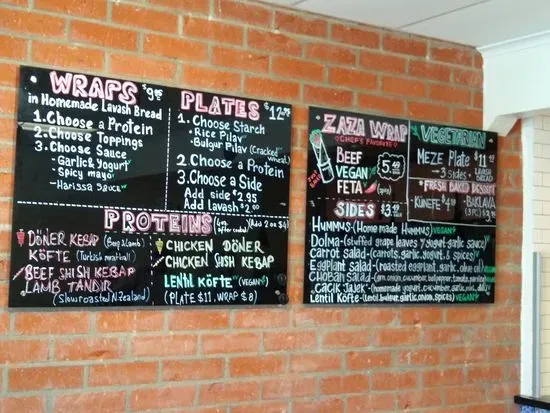 WRAPS $9.95
in Homemade Lavash Bread
1. Choose a Protein
2. Choose Toppings
3. Choose Sauce
- Garlic & Yogurt
- Spicy mayo
- Harissa Sauce
PLATES $12.95
1. Choose Starch
- Rice Pilav
- Bulgur Pilav (Cracked wheat)
2. Choose a Protein
3. Choose a Side
Add side $2.95
Add Lavash $2.00
PROTEINS
DÖNER KEBAP (Beef & Lamb)
KÖFTE (Turkish meatball)
BEEF SHISH KEBAP
LAMB TANDIR
(Slow roasted N. Zealand)
CHICKEN DÖNER
CHICKEN SHISH KEBAP
LENTIL KÖFTE (VEGAN)
(PLATE $11, WRAP $8)
ZAZA WRAP
CHEF'S FAVORITE
BEEF
VEGAN
FETA (spicy)
SIDES
HUMMUS- (Home made Hummus) VEGAN
DOLMA- (stuffed grape leaves & yogurt, garlic sauce)
CARROT SALAD- (carrots, garlic, yogurt, & spices)
EGGPLANT SALAD- (roasted eggplant, garlic, olive oil) VEGAN
CHOBAN SALAD-
CACIK JAJEK-
LENTIL KÖFTE- (lentil, bulgur, garlic, onion, spices) VEGAN
VEGETARIAN
MEZE PLATE $11
- 3 sides + LAVASH BREAD
FRESH BAKED DESSERTS
KÜNEFE - BAKLAVA